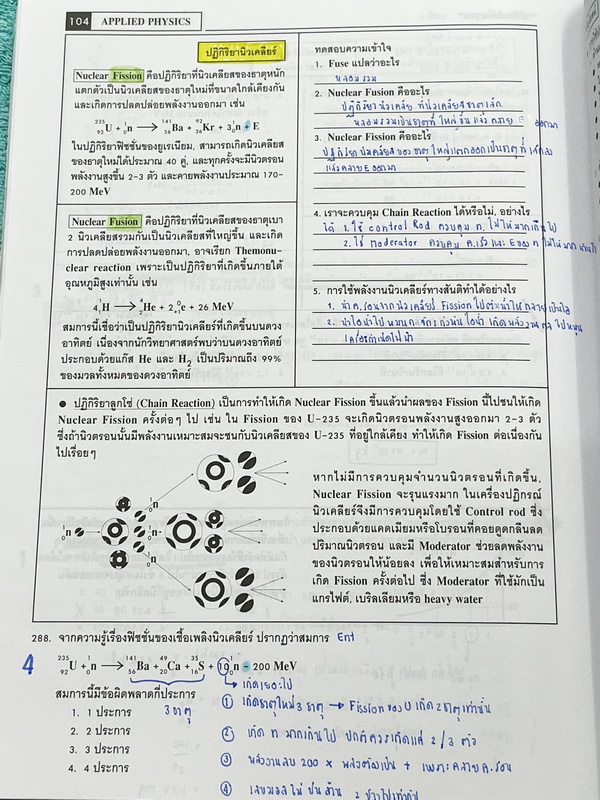 104 APPLIED PHYSICS
ปฏิกิริยานิวเคลียร์
Nuclear Fission คือปฏิกิริยาที่นิวเคลียสของธาตุหนัก
แตกตัวเป็นนิวเคลียสของธาตุใหม่ที่ขนาดใกล้เคียงกัน
และเกิดการปลดปล่อยพลังงานออกมา เช่น
²³⁵₉₂U + ¹₀n → ¹⁴¹₅₆Ba + ⁹²₃₆Kr + 3¹₀n + E
ในปฏิกิริยาฟิชชั่นของยูเรเนียม, สามารถเกิดนิวเคลียส
ของธาตุใหม่ได้ประมาณ 40 คู่, และทุกครั้งจะมีนิวตรอน
พลังงานสูงขึ้น 2-3 ตัว และคายพลังงานประมาณ 170-
200 MeV
Nuclear Fusion คือปฏิกิริยาที่นิวเคลียสของธาตุเบา
2 นิวเคลียสรวมกันเป็นนิวเคลียสที่ใหญ่ขึ้น และเกิด
การปลดปล่อยพลังงานออกมา, อาจเรียก Themonu-
clear reaction เพราะเป็นปฏิกิริยาที่เกิดขึ้นภายใต้
อุณหภูมิสูงเท่านั้น เช่น
4¹₁H → ⁴₂He + 2⁰₊₁e + 26 MeV
สมการนี้เชื่อว่าเป็นปฏิกิริยานิวเคลียร์ที่เกิดขึ้นบนดวง
อาทิตย์ เนื่องจากนักวิทยาศาสตร์พบว่าบนดวงอาทิตย์
ประกอบด้วยแก๊ส He และ H₂ เป็นปริมาณถึง 99%
ของมวลทั้งหมดของดวงอาทิตย์
ทดสอบความเข้าใจ
1. Fuse แปลว่าอะไร
หลอมรวม
2. Nuclear Fusion คืออะไร
ปฏิกิริยา นิวเคลีย ที่นิวเคลียสธาตุเล็ก
หลอมรวมเป็นธาตุที่ใหญ่ขึ้น แล้ว คลาย E ออกมา
3. Nuclear Fission คืออะไร
ปฏิกิริยา นิวเคลียร์ ของ ธาตุ ใหญ่แตกออกเป็นธาตุ ที่
แล้วคลาย E ออกมา
4. เราจะควบคุม Chain Reaction ได้หรือไม่, อย่างไร
ได้ 1. ใช้ control Rod ควบคุม n. ไม่ให้มากเกินไป
2. ใช้ Moderator ควบคุม ค.เร็ว และ E ของ n ไม่ให้มาก
5. การใช้พลังงานนิวเคลียร์ทางสันติทำได้อย่างไร
1. นำ ค.ร้อนจาก นิวเคลียร์ Fission ไปต้มน้ำให้กลายเป็นไอ
2. นำไอน้ำไป หมุน กังหัน ไอน้ำ เกิด ไปหมุน
เครื่องกำเนิดไฟฟ้า
● ปฏิกิริยาลูกโซ่ (Chain Reaction) เป็นการทำให้เกิด Nuclear Fission ขึ้นแล้วนำผลของ Fission นี้ไปชนให้เกิด
Nuclear Fission ครั้งต่อๆ ไป เช่น ใน Fission ของ U-235 จะเกิดนิวตรอนพลังงานสูงออกมา 2-3 ตัว
ซึ่งถ้านิวตรอนนั้นมีพลังงานเหมาะสมจะชนกับนิวเคลียสของ U-235 ที่อยู่ใกล้เคียง ทำให้เกิด Fission ต่อเนื่องกัน
ไปเรื่อยๆ
¹₀n
¹₀n
¹₀n
¹₀n
หากไม่มีการควบคุมจำนวนนิวตรอนที่เกิดขึ้น,
Nuclear Fission จะรุนแรงมาก ในเครื่องปฏิกรณ์
นิวเคลียร์จึงมีการควบคุมโดยใช้ Control rod ซึ่ง
ประกอบด้วยแคดเมียมหรือโบรอนที่คอยดูดกลืนลด
ปริมาณนิวตรอน และมี Moderator ช่วยลดพลังงาน
ของนิวตรอนให้น้อยลง เพื่อให้เหมาะสมสำหรับการ
เกิด Fission ครั้งต่อไป ซึ่ง Moderator ที่ใช้มักเป็น
แกรไฟต์, เบริลเลียมหรือ heavy water
288. จากความรู้เรื่องฟิชชั่นของเชื้อเพลิงนิวเคลียร์ ปรากฏว่าสมการ Ent
4 ²³⁵₉₂U + ¹₀n → ¹⁴¹₅₆Ba + ⁴⁹₂₀Ca + ³⁵₁₆S + 10¹₀n - 200 MeV
เกิดเยอะไป
สมการนี้มีข้อผิดพลาดกี่ประการ
3 ธาตุ
① เกิดธาตุใหม่ 3 ธาตุ → Fission ของ U เกิด 2 ธาตุเท่านั้น
1. 1 ประการ
② เกิด n มากเกินไป ปกติควรเกิดแค่ 2/3 ตัว
2. 2 ประการ
③ พลังงานลบ 200 × พลังงานเป็น + เพราะ คลาย ค.ร้อน
3. 3 ประการ
4. 4 ประการ
④ เลขมวลไม่ 2 ข้างไม่เท่ากัน